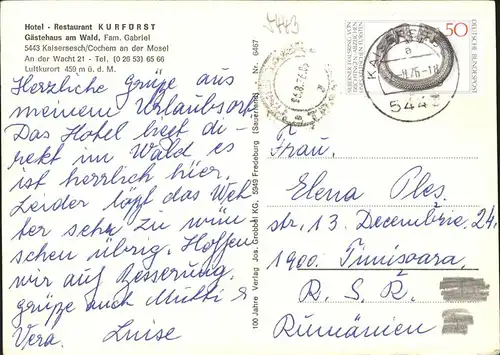 Hotel - Restaurant KURFÜRST
Gästehaus am Wald, Fam. Gabriel
5443 Kaisersesch/Cochem an der Mosel
An der Wacht 21 - Tel. (0 26 53) 65 66
Luftkurort 459 m ü. d. M.
Herzliche Grüße aus
meinem Urlaubsort.
Das Hotel liegt di-
rekt im Wald es
ist herrlich hier.
Leider läßt das Wet-
ter sehr zu wün-
schen übrig. Hoffen
wir auf Besserung.
grüße auch Mutti &
Vera. Luise
100 Jahre Verlag Jos. Grobbel KG, 5949 Fredeburg (Sauerland) Nr. 6467
4443
KAISERSESCH
a
76-18
544
50
DEUTSCHE BUNDESPOST
Frau.
Elena Ples.
str. 13 Decembrie. 24.
1900. Timisoara.
R. S. R.
Rumänien